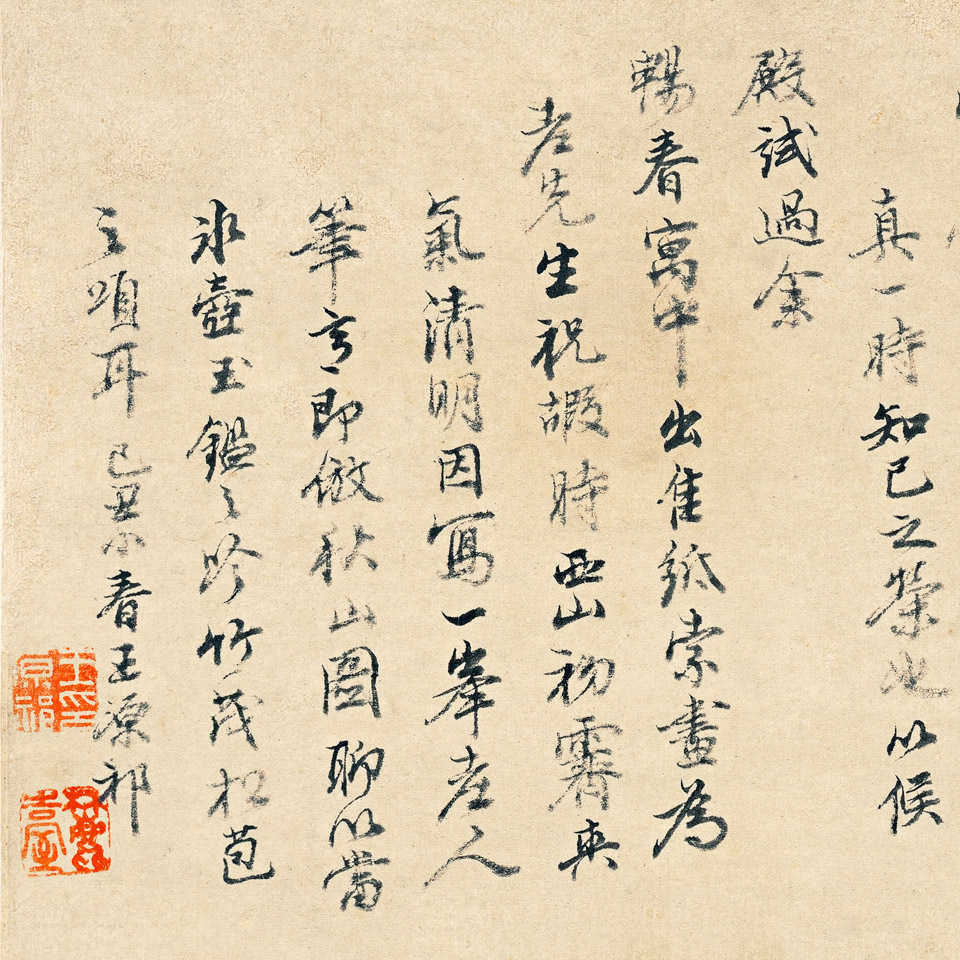 真一時知己之榮也以候
殿試過余
暢春寓中出佳紙索畫為
老先生祝嘏時西山初霽爽
氣清明因寫一峯老人
筆意即倣秋山圖聊以當
冰壺玉鑑之吟竹茂松苞
之頌耳 己丑小春王原祁
王印原祁
麓臺